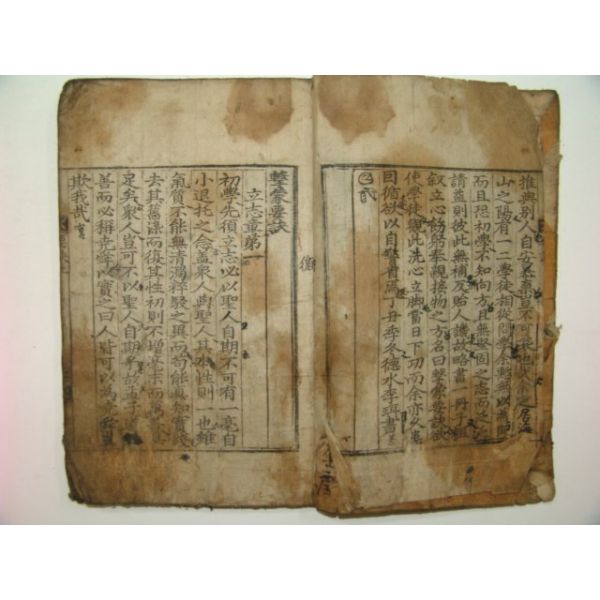 推與別人自安暴棄豈不可哀也哉余定居海
山之陽有一二學徒相從問學余慙無以爲師
而且恐初學不知向方且無堅固之志而泛泛
請益則彼此無補反貽人譏故略書一冊子粗
叙立心飭躬奉親接物之方名曰擊蒙要訣欲
使學徒觀此洗心立脚當日下功而余亦久患
因循欲以自警省焉丁丑季冬德水李珥書
擊蒙要訣
立志章第一
初學先須立志必以聖人自期不可有一毫自
小退托之念蓋衆人與聖人其本性則一也雖
氣質不能無淸濁粹駁之異而苟能眞知實踐
去其舊染而復其性初則不增毫末而萬善
足矣衆人豈可不以聖人自期乎故孟子道
善而必稱堯舜以實之曰人皆可以爲堯舜豈
欺我哉